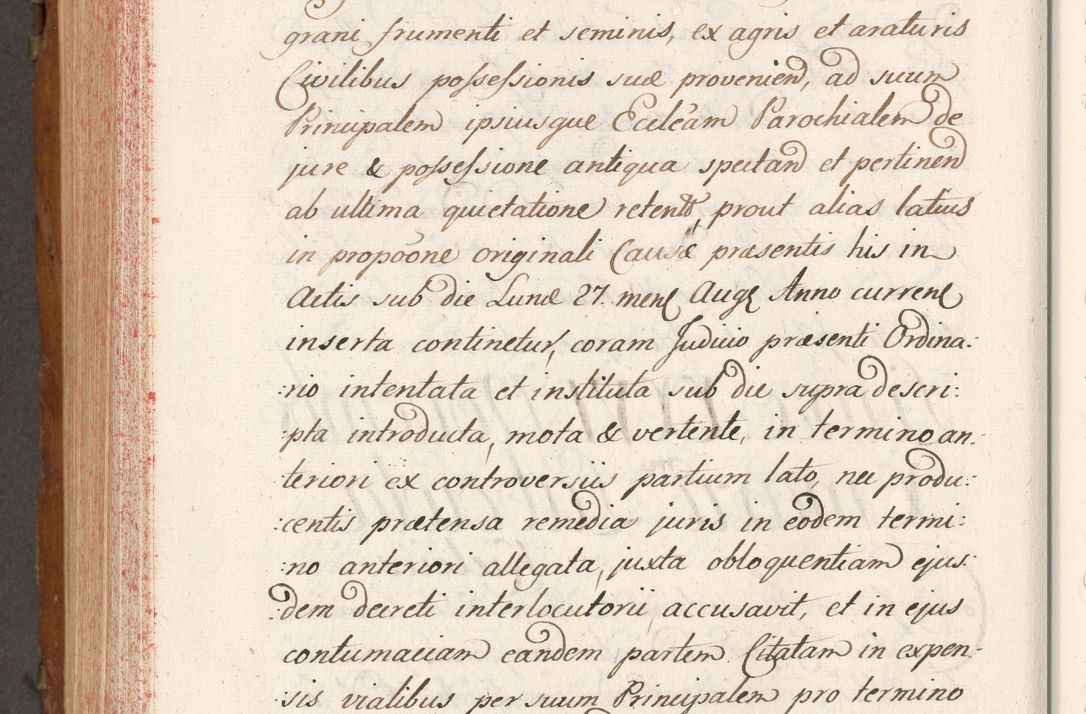 grani frumenti et seminis, ex agris et araturis
Civilibus possessionis suæ provenien, ad suum
Principalem ipsiusque Eccleam Parochialem de
jure & possessione antiqua spectan et pertinen
ab ultima quietatione retent, prout alias latius
in propoone originali Causæ præsentis his in
Actis sub die Lunæ 27. mens Augs Anno currens
inserta continetur, coram Judicio præsenti Ordina:
:rio intentata et instituta sub die supra descri:
:pta introducta, mota & vertente, in termino an:
:teriori ex controversiis partium lato, nec produ:
:centis prætensa remedia juris in eodem termi:
:no anteriori allegata, juxta obloquentiam ejus:
:dem decreti interlocutorii, accusavit, et in ejus
contumaciam eandem partem Citatam in expen:
:sis vialibus per suum Principalem pro termino